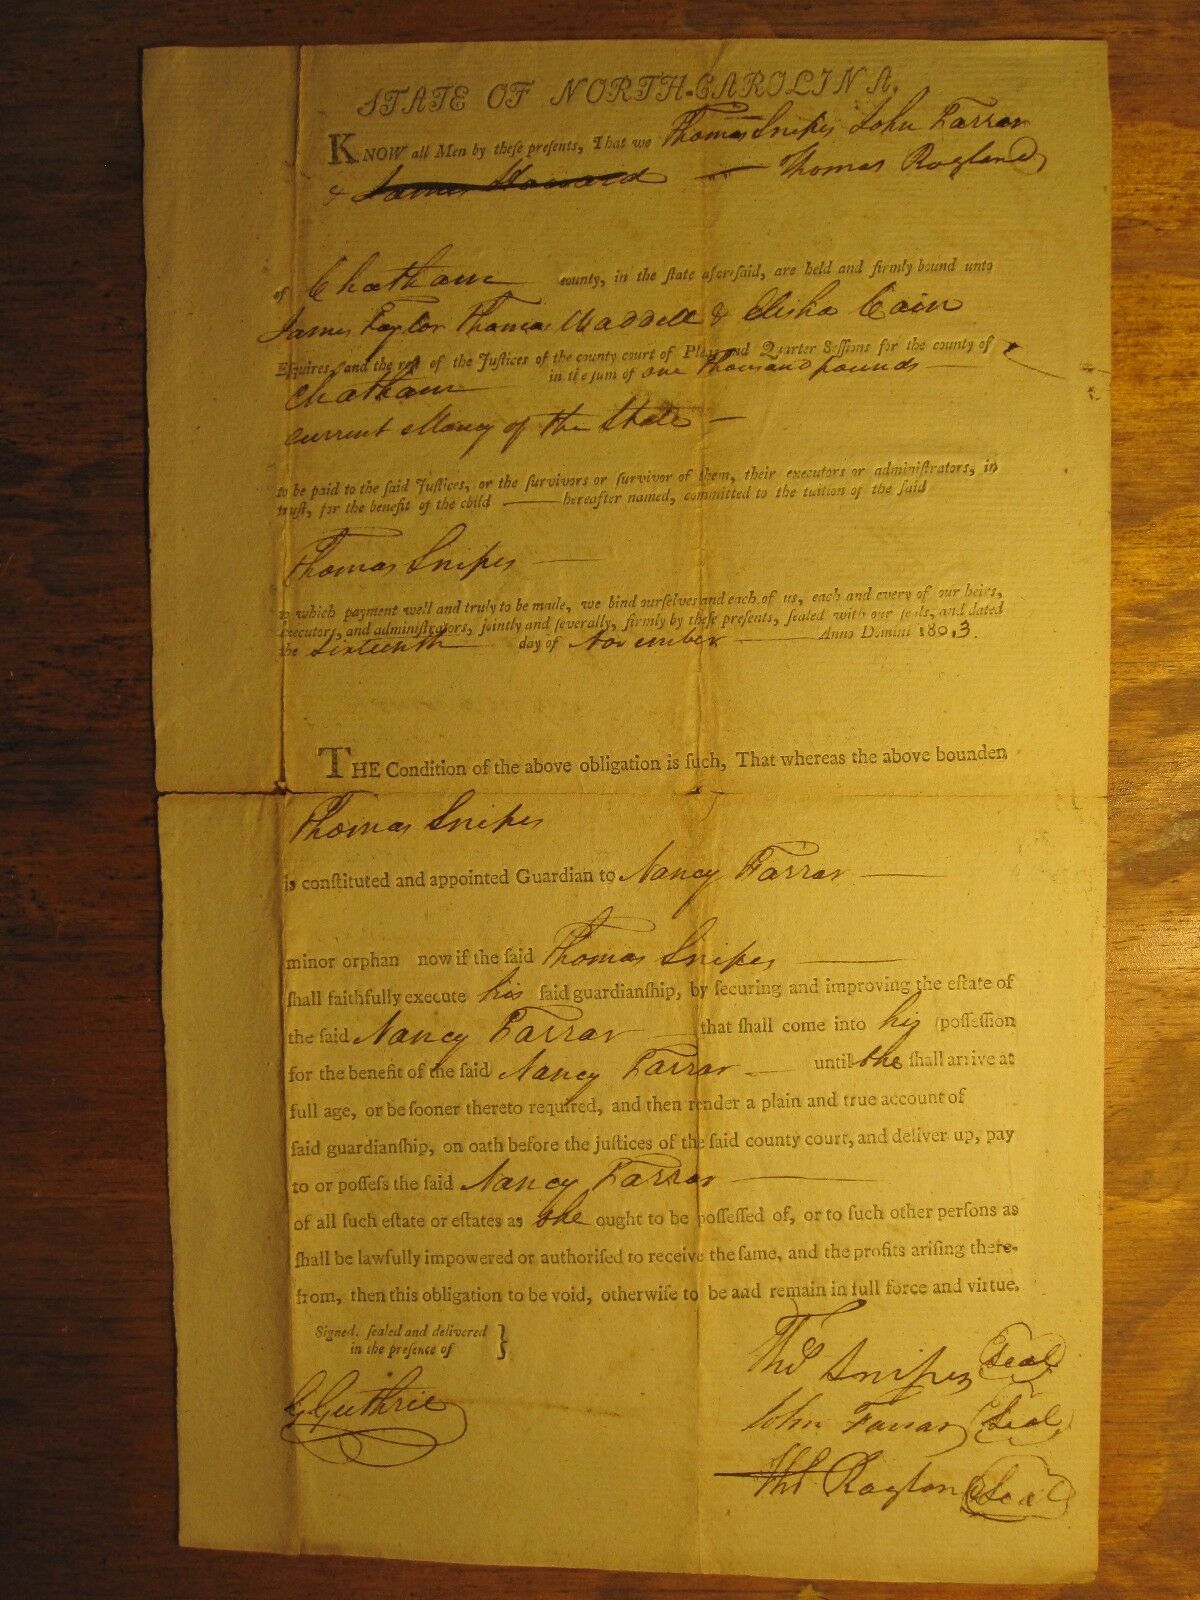 STATE OF NORTH-CAROLINA,
KNOW all Men by theſe preſents, That we Thomas Snipes John Farrar
& James Howard Thomas Ragland
of Chatham county, in the ſtate aforeſaid, are held and firmly bound unto
James Taylor Thomas Waddell & Elisha Cain
Eſquires, and the reſt of the Juſtices of the county court of Pleas and Quarter Seſſions for the county of
Chatham in the ſum of one thousand pounds
current Money of the State
to be paid to the ſaid Juſtices, or the ſurvivors or ſurvivor of them, their executors or adminiſtrators, in
truſt, for the benefit of the child hereafter named, committed to the tuition of the ſaid
Thomas Snipes
to which payment well and truly to be made, we bind ourſelves and each of us, each and every of our heirs,
executors, and adminiſtrators, jointly and ſeverally, firmly by theſe preſents, ſealed with our ſeals, and dated
the sixteenth day of November Anno Domini 1803.
THE Condition of the above obligation is ſuch, That whereas the above bounden
Thomas Snipes
is conſtituted and appointed Guardian to Nancy Farrar
minor orphan now if the ſaid Thomas Snipes
ſhall faithfully execute his ſaid guardianſhip, by ſecuring and improving the eſtate of
the ſaid Nancy Farrar that ſhall come into his poſſeſſion
for the benefit of the ſaid Nancy Farrar until she ſhall arrive at
full age, or be ſooner thereto required, and then render a plain and true account of
ſaid guardianſhip, on oath before the juſtices of the ſaid county court, and deliver up, pay
to or poſſeſs the ſaid Nancy Farrar
of all ſuch eſtate or eſtates as she ought to be poſſeſſed of, or to ſuch other perſons as
ſhall be lawfully impowered or authoriſed to receive the ſame, and the profits ariſing there-
from, then this obligation to be void, otherwiſe to be and remain in full force and virtue.
Signed, ſealed and delivered
in the preſence of }
Thos Snipes Seal
G Guthrie
John Farrar Seal
Thos Ragland Seal